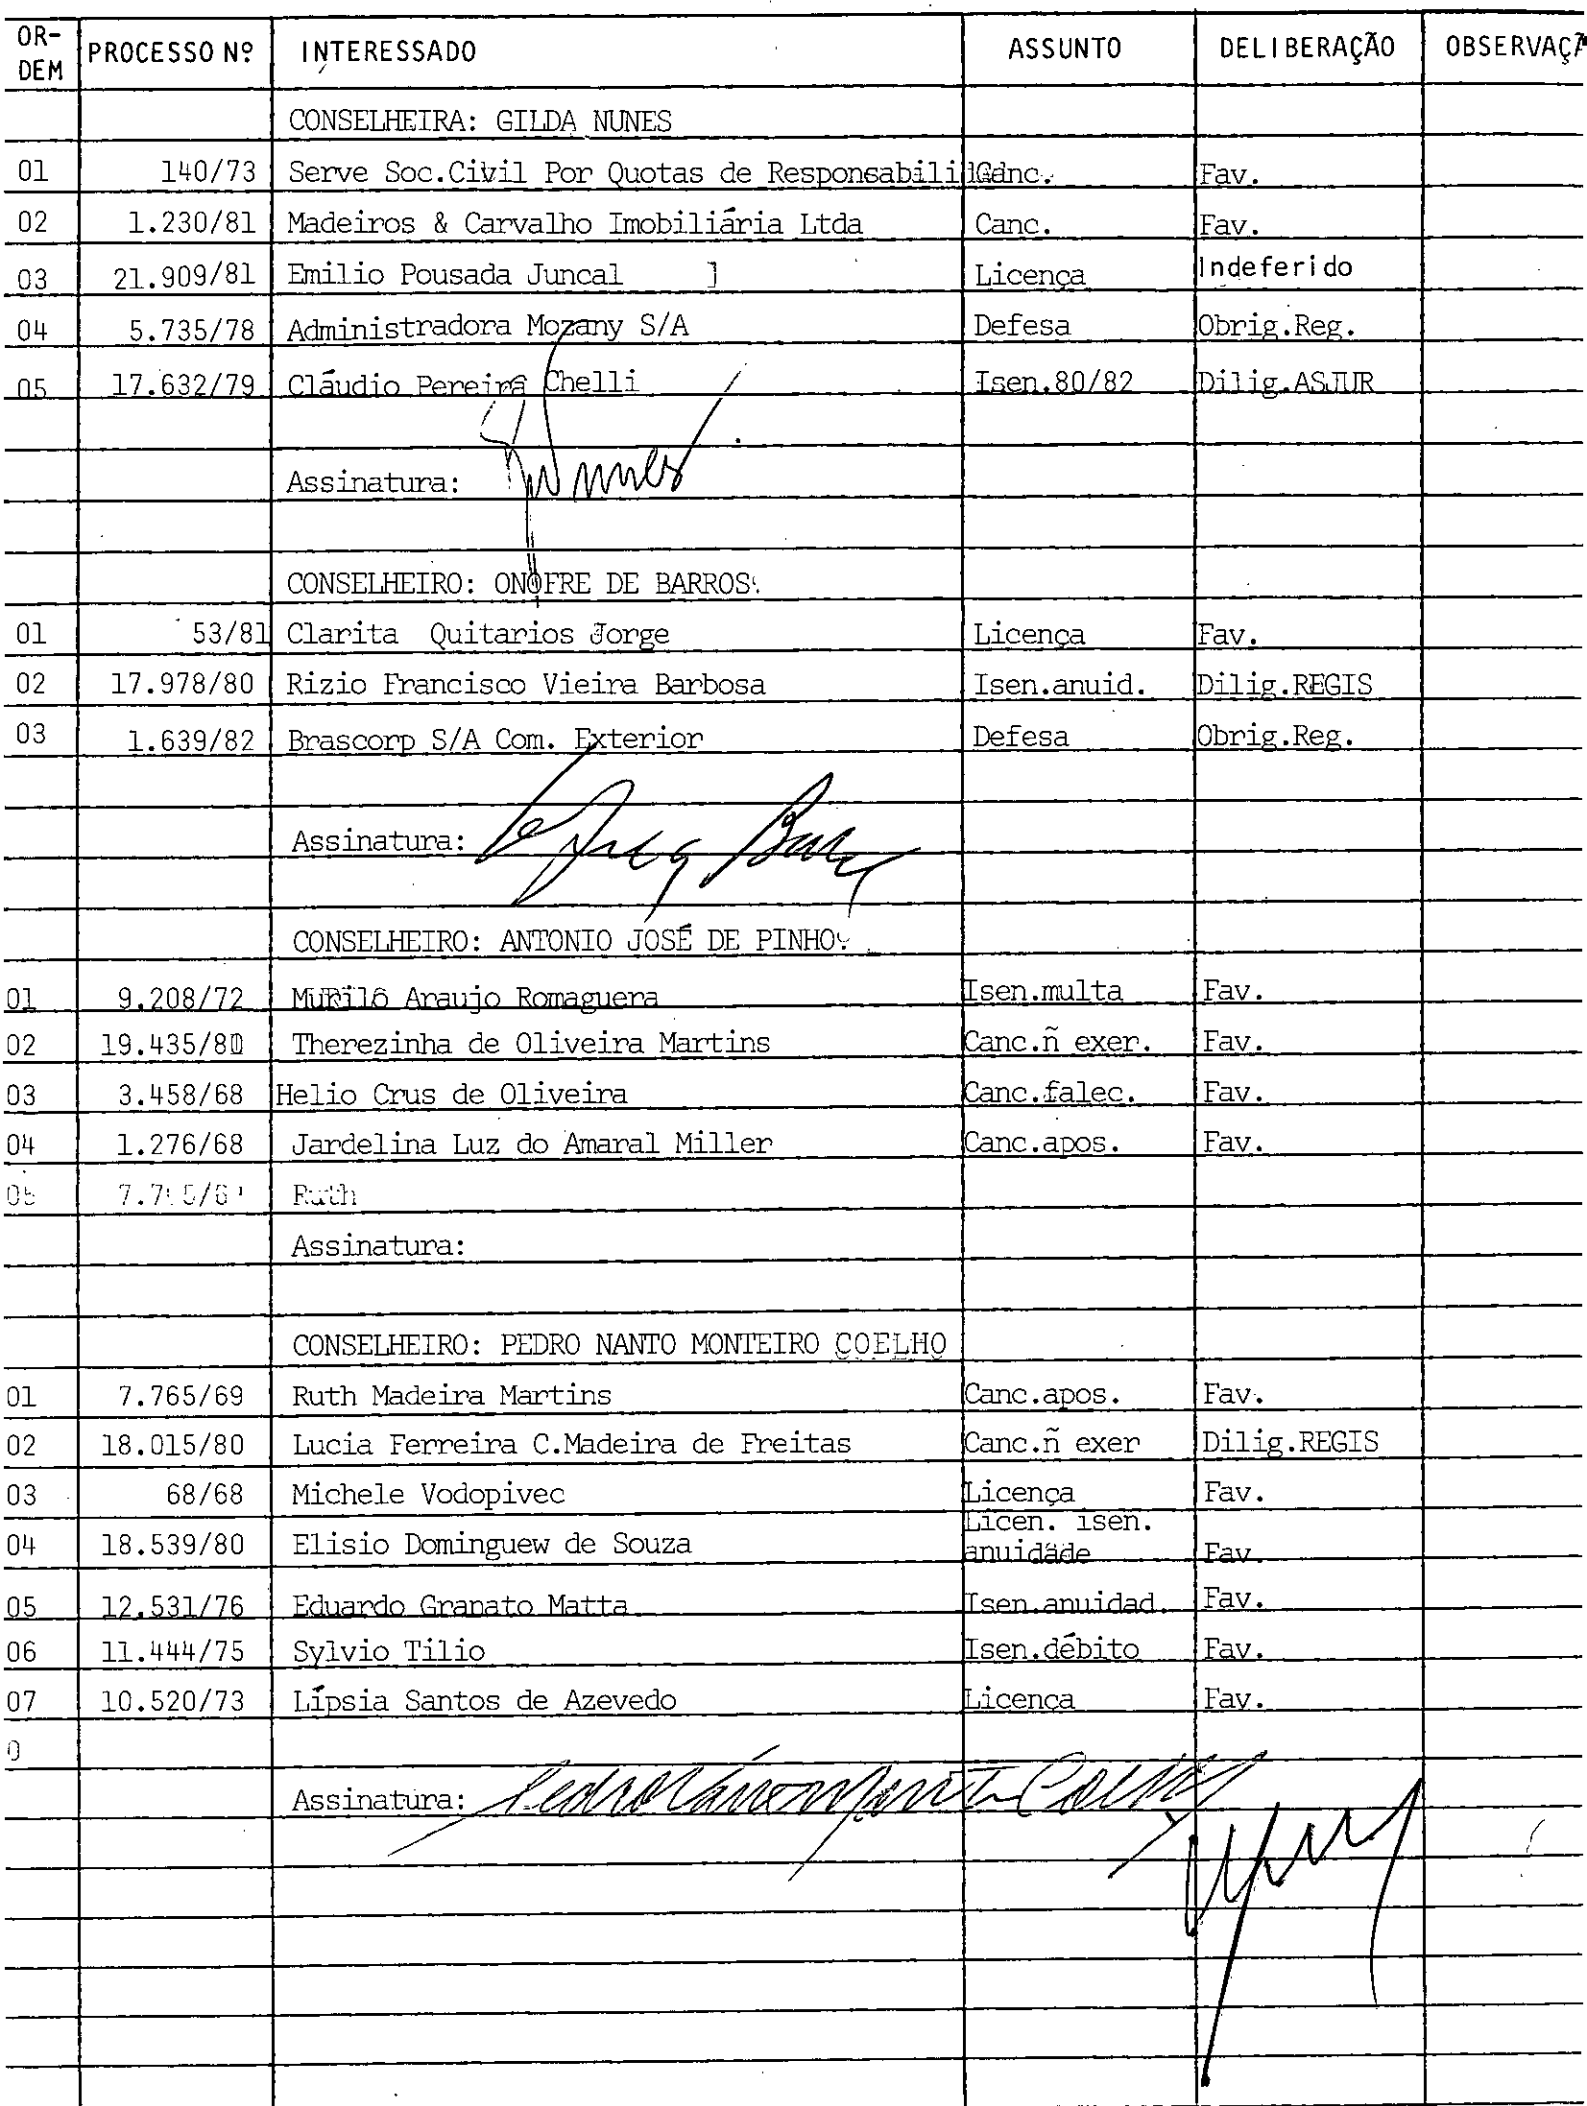 OR-DEM PROCESSO Nº INTERESSADO ASSUNTO DELIBERAÇÃO OBSERVAÇÃ
CONSELHEIRA: GILDA NUNES
01 140/73 Serve Soc.Civil Por Quotas de Responsabili Canc. Fav.
02 1.230/81 Madeiros & Carvalho Imobiliária Ltda Canc. Fav.
03 21.909/81 Emilio Pousada Juncal ] Licença Indeferido
04 5.735/78 Administradora Mozany S/A Defesa Obrig.Reg.
05 17.632/79 Cláudio Pereira Chelli Isen.80/82 Dilig.ASJUR
Assinatura:
CONSELHEIRO: ONOFRE DE BARROS
01 53/81 Clarita Quitarios Jorge Licença Fav.
02 17.978/80 Rizio Francisco Vieira Barbosa Isen.anuid. Dilig.REGIS
03 1.639/82 Brascorp S/A Com. Exterior Defesa Obrig.Reg.
Assinatura:
CONSELHEIRO: ANTONIO JOSÉ DE PINHO
01 9.208/72 Murilo Araujo Romaguera Isen.multa Fav.
02 19.435/80 Therezinha de Oliveira Martins Canc.ñ exer. Fav.
03 3.458/68 Helio Crus de Oliveira Canc.falec. Fav.
04 1.276/68 Jardelina Luz do Amaral Miller Canc.apos. Fav.
Ruth
Assinatura:
CONSELHEIRO: PEDRO NANTO MONTEIRO COELHO
01 7.765/69 Ruth Madeira Martins Canc.apos. Fav.
02 18.015/80 Lucia Ferreira C.Madeira de Freitas Canc.ñ exer Dilig.REGIS
03 68/68 Michele Vodopivec Licença Fav.
04 18.539/80 Elisio Dominguew de Souza Licen. isen.
anuidade Fav.
05 12.531/76 Eduardo Granato Matta Isen.anuidad. Fav.
06 11.444/75 Sylvio Tilio Isen.débito Fav.
07 10.520/73 Lípsia Santos de Azevedo Licença Fav.
0
Assinatura: